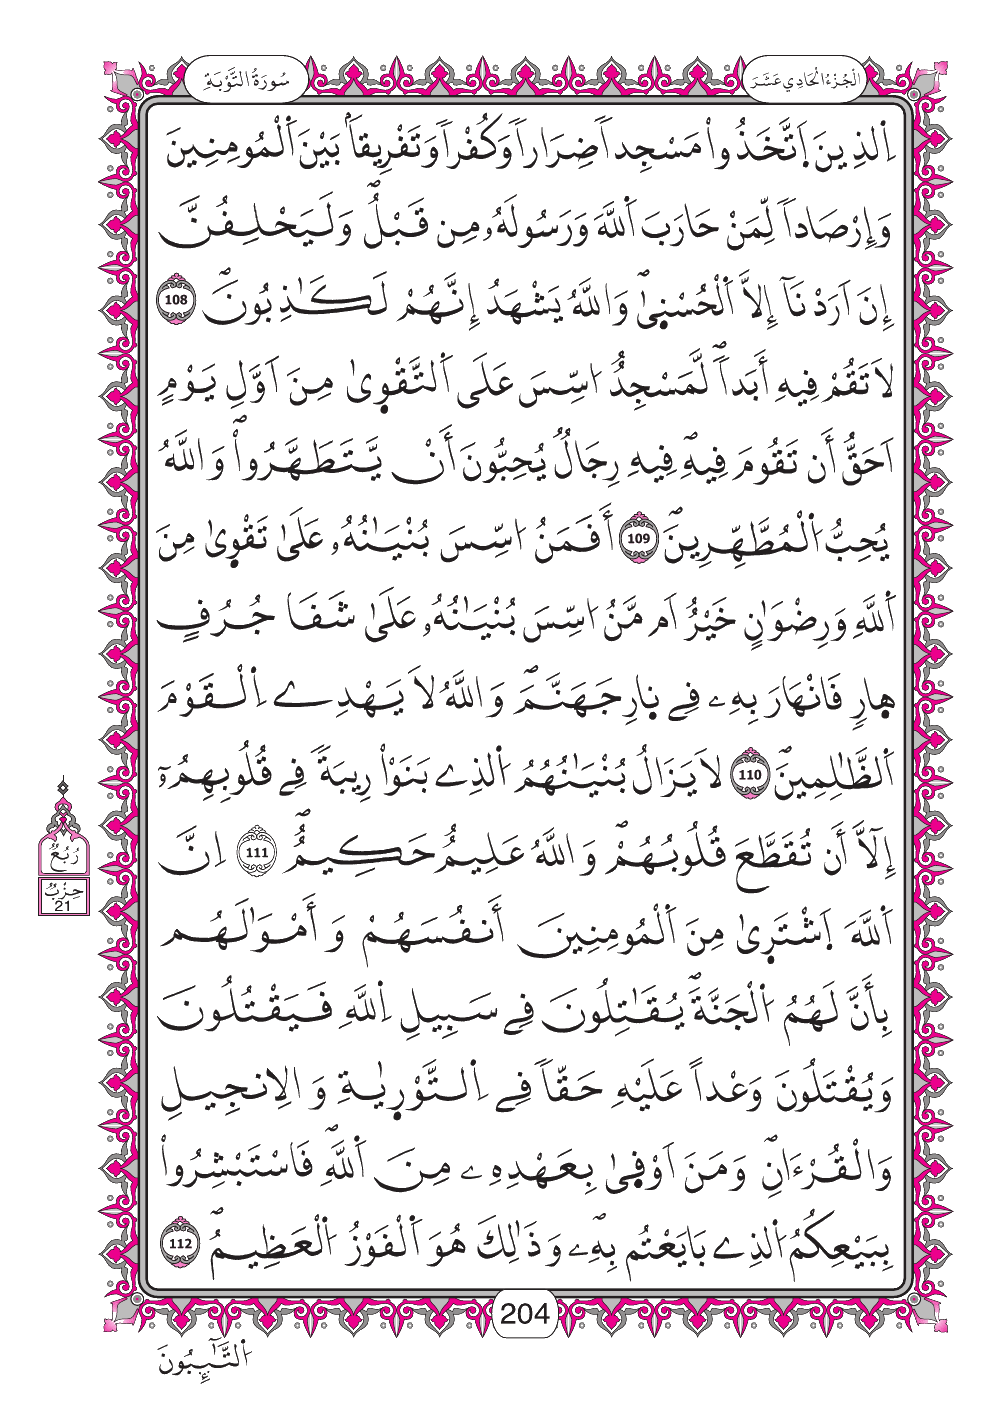 سُورَةُ التَّوْبَةِ
الْجُزْءُ الْحَادِي عَشَرَ
اَ۬لذِينَ اَ۪تَّخَذُواْ مَسْجِداٗ ضِرَاراٗ وَكُفْراٗ وَتَفْرِيقاَۢ بَيْنَ اَ۬لْمُومِنِينَ
وَإِرْصَاداٗ لِّمَنْ حَارَبَ اَ۬للَّهَ وَرَسُولَهُۥ مِن قَبْلُۖ وَلَيَحْلِفُنَّ
إِنَ اَرَدْنَآ إِلَّا اَ۬لْحُسْنۭيٰۖ وَاللَّهُ يَشْهَدُ إِنَّهُمْ لَكَٰذِبُونَۖ 108
لَا تَقُمْ فِيهِ أَبَداٗۖ لَّمَسْجِدٌ ا۟سِّسَ عَلَي اَ۬لتَّقْوۭيٰ مِنَ اَوَّلِ يَوْمٍ
اَحَقُّ أَن تَقُومَ فِيهِۖ فِيهِ رِجَالٞ يُحِبُّونَ أَنْ يَّتَطَهَّرُواْۖ وَاللَّهُ
يُحِبُّ اُ۬لْمُطَّهِّرِينَۖ 109 أَفَمَنُ ا۟سِّسَ بُنْيَٰنُهُۥ عَلَيٰ تَقْوۭيٰ مِنَ
اَ۬للَّهِ وَرِضْوَٰنٍ خَيْرٌ اَم مَّنُ ا۟سِّسَ بُنْيَٰنُهُۥ عَلَيٰ شَفَا جُرُفٍ
هۭارٖ فَانْهَارَ بِهِۦ فِے نۭارِ جَهَنَّمَۖ وَاللَّهُ لَا يَهْدِے اِ۬لْقَوْمَ
اَ۬لظَّٰلِمِينَۖ 110 لَا يَزَالُ بُنْيَٰنُهُمُ اُ۬لذِے بَنَوْاْ رِيبَةٗ فِے قُلُوبِهِمُۥٓ
إِلَّآ أَن تُقَطَّعَ قُلُوبُهُمْۖ وَاللَّهُ عَلِيمٌ حَكِيمٌۖ 111 اِنَّ
اَ۬للَّهَ اَ۪شْتَرۭيٰ مِنَ اَ۬لْمُومِنِينَ أَنفُسَهُمْ وَأَمْوَٰلَهُم
بِأَنَّ لَهُمُ اُ۬لْجَنَّةَۖ يُقَٰتِلُونَ فِے سَبِيلِ اِ۬للَّهِ فَيَقْتُلُونَ
وَيُقْتَلُونَ وَعْداً عَلَيْهِ حَقّاٗ فِے اِ۬لتَّوْرۭيٰةِ وَالِانجِيلِ
وَالْقُرْءَانِۖ وَمَنَ اَوْفۭيٰ بِعَهْدِهِۦ مِنَ اَ۬للَّهِۖ فَاسْتَبْشِرُواْ
بِبَيْعِكُمُ اُ۬لذِے بَايَعْتُم بِهِۦۖ وَذَٰلِكَ هُوَ اَ۬لْفَوْزُ اُ۬لْعَظِيمُۖ 112
رُبُعٌ
حِزْبٌ
21
204
اَ۬لتَّٰٓئِبُونَ